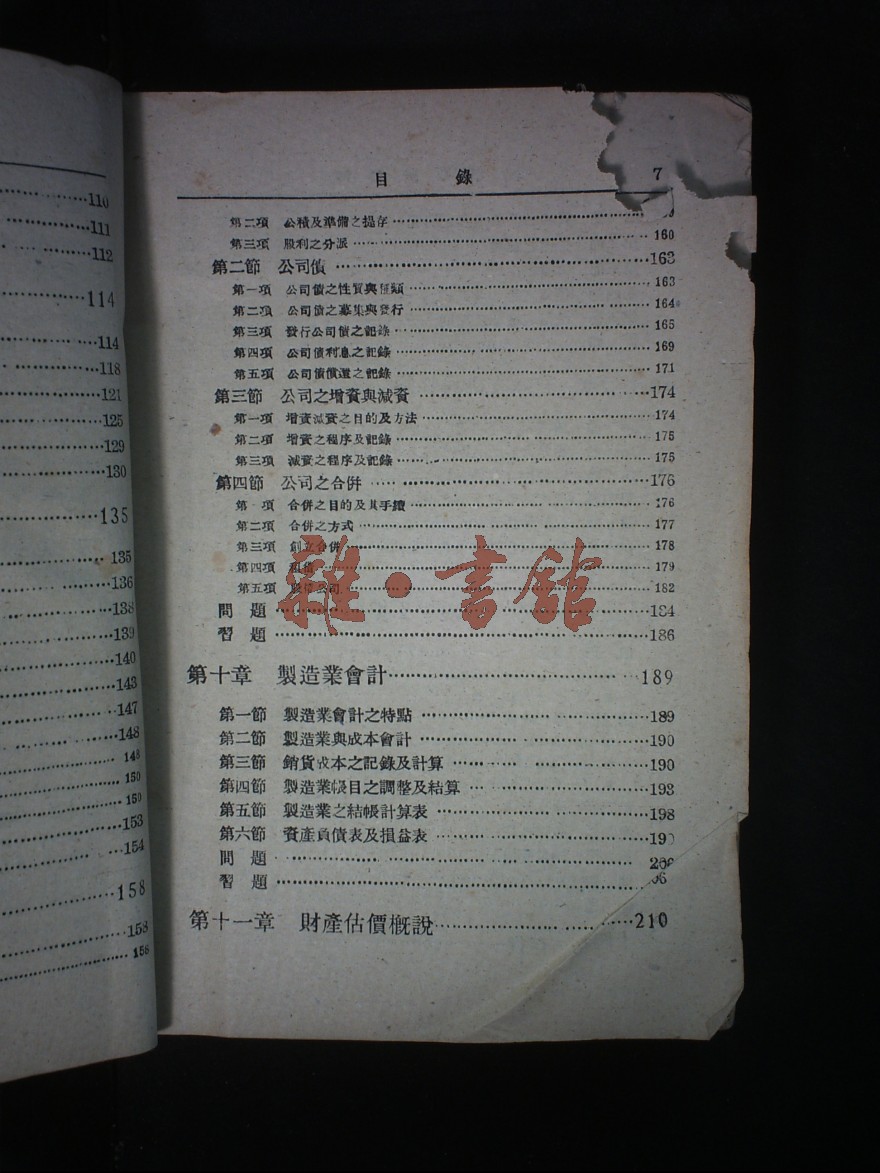 110
111
112
114
114
118
121
125
129
130
135
135
136
138
139
140
143
147
148
148
150
150
153
154
158
158
158
目錄 7
第二項 公積及準備之提存
第三項 股利之分派 160
第二節 公司債 163
第一項 公司債之性質與種類 163
第二項 公司債之募集與發行 164
第三項 發行公司債之記錄 165
第四項 公司債利息之記錄 169
第五項 公司債償還之記錄 171
第三節 公司之增資與減資 174
第一項 增資減資之目的及方法 174
第二項 增資之程序及記錄 175
第三項 減資之程序及記錄 175
第四節 公司之合併 176
第一項 合併之目的及其手續 176
第二項 合併之方式 177
第三項 創立合併 178
第四項 179
第五項 公司 182
問題 184
習題 186
第十章 製造業會計 189
第一節 製造業會計之特點 189
第二節 製造業與成本會計 190
第三節 銷貨成本之記錄及計算 190
第四節 製造業帳目之調整及結算 193
第五節 製造業之結帳計算表 198
第六節 資產負債表及損益表 19
問題
習題
第十一章 財產估價概說 210
雜·書館